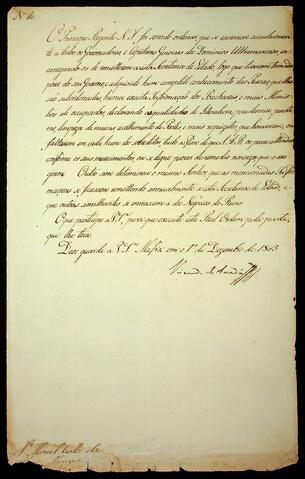 O Principe Regente N. S. foi servido ordenar, que se escrevesse circularmente
a todos os Governadores e Capitães Generaes dos Dominios Ultramarinos, en
carregando-os de remetterem a esta Secretaria de Estado, logo que tiverem tomado
posse do seu Governo, e adquirido hum completo conhecimento das Pessoas que lhes
são subordinadas, huma exacta Informação dos Bachareis, e mais
declarando as qualidades de Literatura, prudencia,
limpeza de mãos, acolhimento de Partes, e mais requisitos que houverem, ou
faltarem em cada hum dos sobreditos, tudo a fim de que S. A. R. os possa attender
conforme os seus merecimentos, ou se digne dar o remedio nos cazos que o exi
girem. Outro sim determina o mesmo Senhor que as mencionadas Infor
maçoens se fiquem remettendo annualmente a esta Secretaria de Estado, e
que outras similhantes se enviassem a dos Negocios do Reino.
O que participo a V. S.ª para que execute esta Real Ordem pela parte,
que lhe toca.
Deos guarde a V. S.ª Mafra em o 1º de Dezembro de 1803
Visconde de Anadia
Sr. Manoel Carlos de